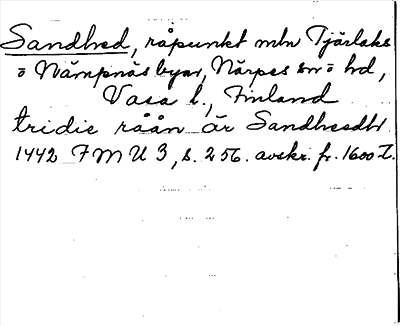 Sandhed, råpunkt mln Tjärlaks
o Nämpnäs byar, Närpes sn o hd,
Vasa l., Finland
tridie råån är Sandheedh
1442 FMU 3, s. 256. avskr. fr. 1600 t.